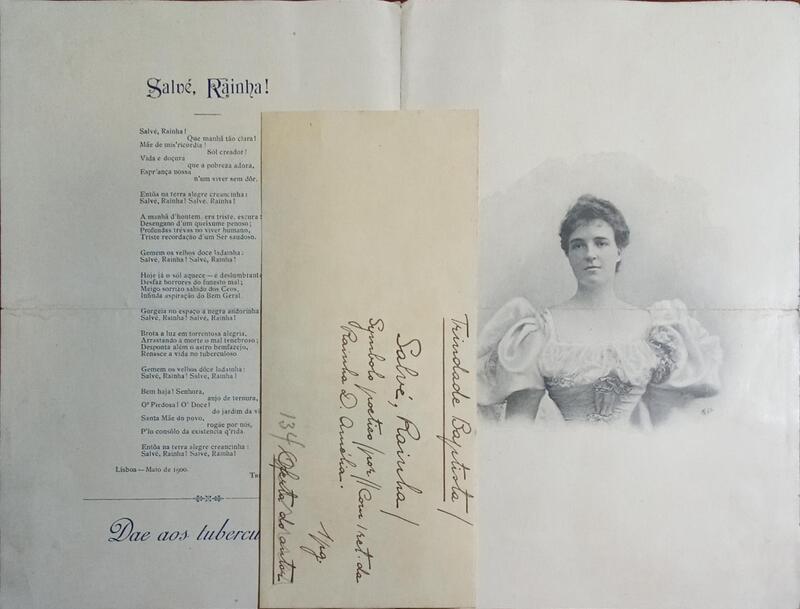 Salvé, Rainha!
Salvé, Rainha!
Que manhã tão clara!
Mãe de mis'ricordia!
Sól creador!
Vida e doçura
que a pobreza adora,
Espr'ança nossa
n'um viver sem dôr.
Entôa na terra alegre creancinha:
Salvé, Rainha! Salvé, Rainha!
A manhã d'hontem, era triste, escura
Desengano d'um queixume penoso;
Profundas trévas no viver humano,
Triste recordação d'um Ser saudoso.
Gemem os velhos doce ladainha:
Salvé, Rainha! Salvé, Rainha!
Hoje já o sól aquece—é deslumbrante
Desfaz horrores do funesto mal;
Meigo sorriso sahido dos Ceos,
Infinda aspiração do Bem Geral.
Gorgeia no espaço a negra andorinha
Salvé, Rainha! Salvé, Rainha!
Brota a luz em torrentosa alegria,
Arrastando á morte o mal tenebroso;
Desponta além o astro bemfazejo,
Renasce a vida no tuberculoso.
Gemem os velhos dôce ladainha:
Salvé, Rainha! Salvé, Rainha!
Bem haja! Senhora,
anjo de ternura,
O' Piedosa! O' Doce!
do jardim da
Santa Mãe do povo,
rogae por nós,
P'lo consôlo da existencia q'rida.
Entôa na terra alegre creancinha:
Salvé, Rainha! Salvé, Rainha!
Lisboa—Maio de 1900.
Dae aos tubercu
Trindade Baptista/
Salvé, Rainha/
Symbolo poetico/por//Com 1 ret. da
Rainha D. Amélia.
1 pg.
134/Oferta do autor